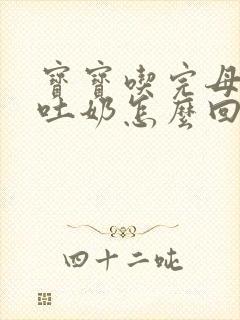 寶寶喫完母
吐奶怎麼回
四十二吨